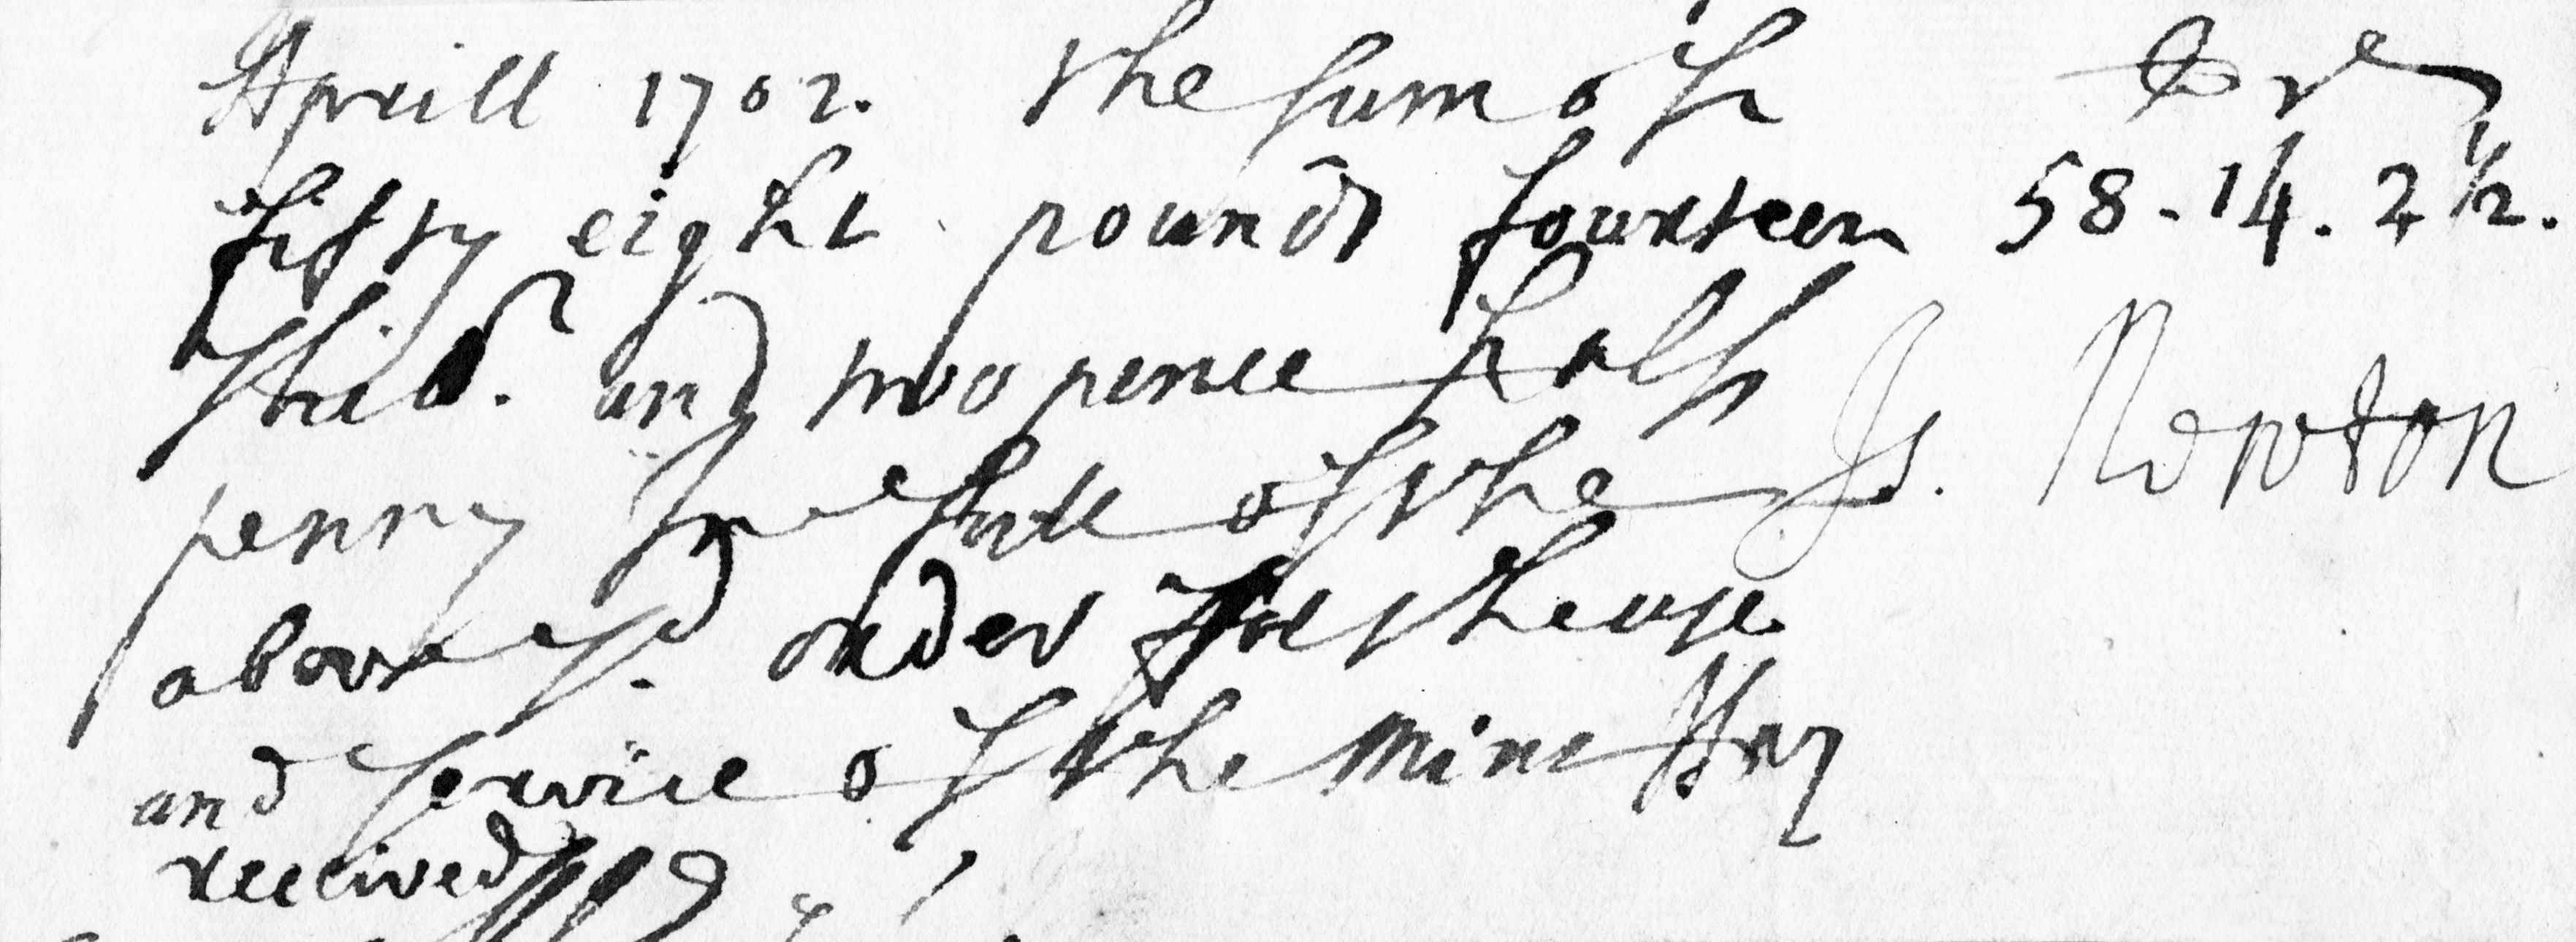 Aprill 1702. the sum of
fifty eight pounds fourteen 58-14.2½.
shill. and two pence half
penny In full of the Is. Newton
abovesd. order for the use
and service of the mint
received